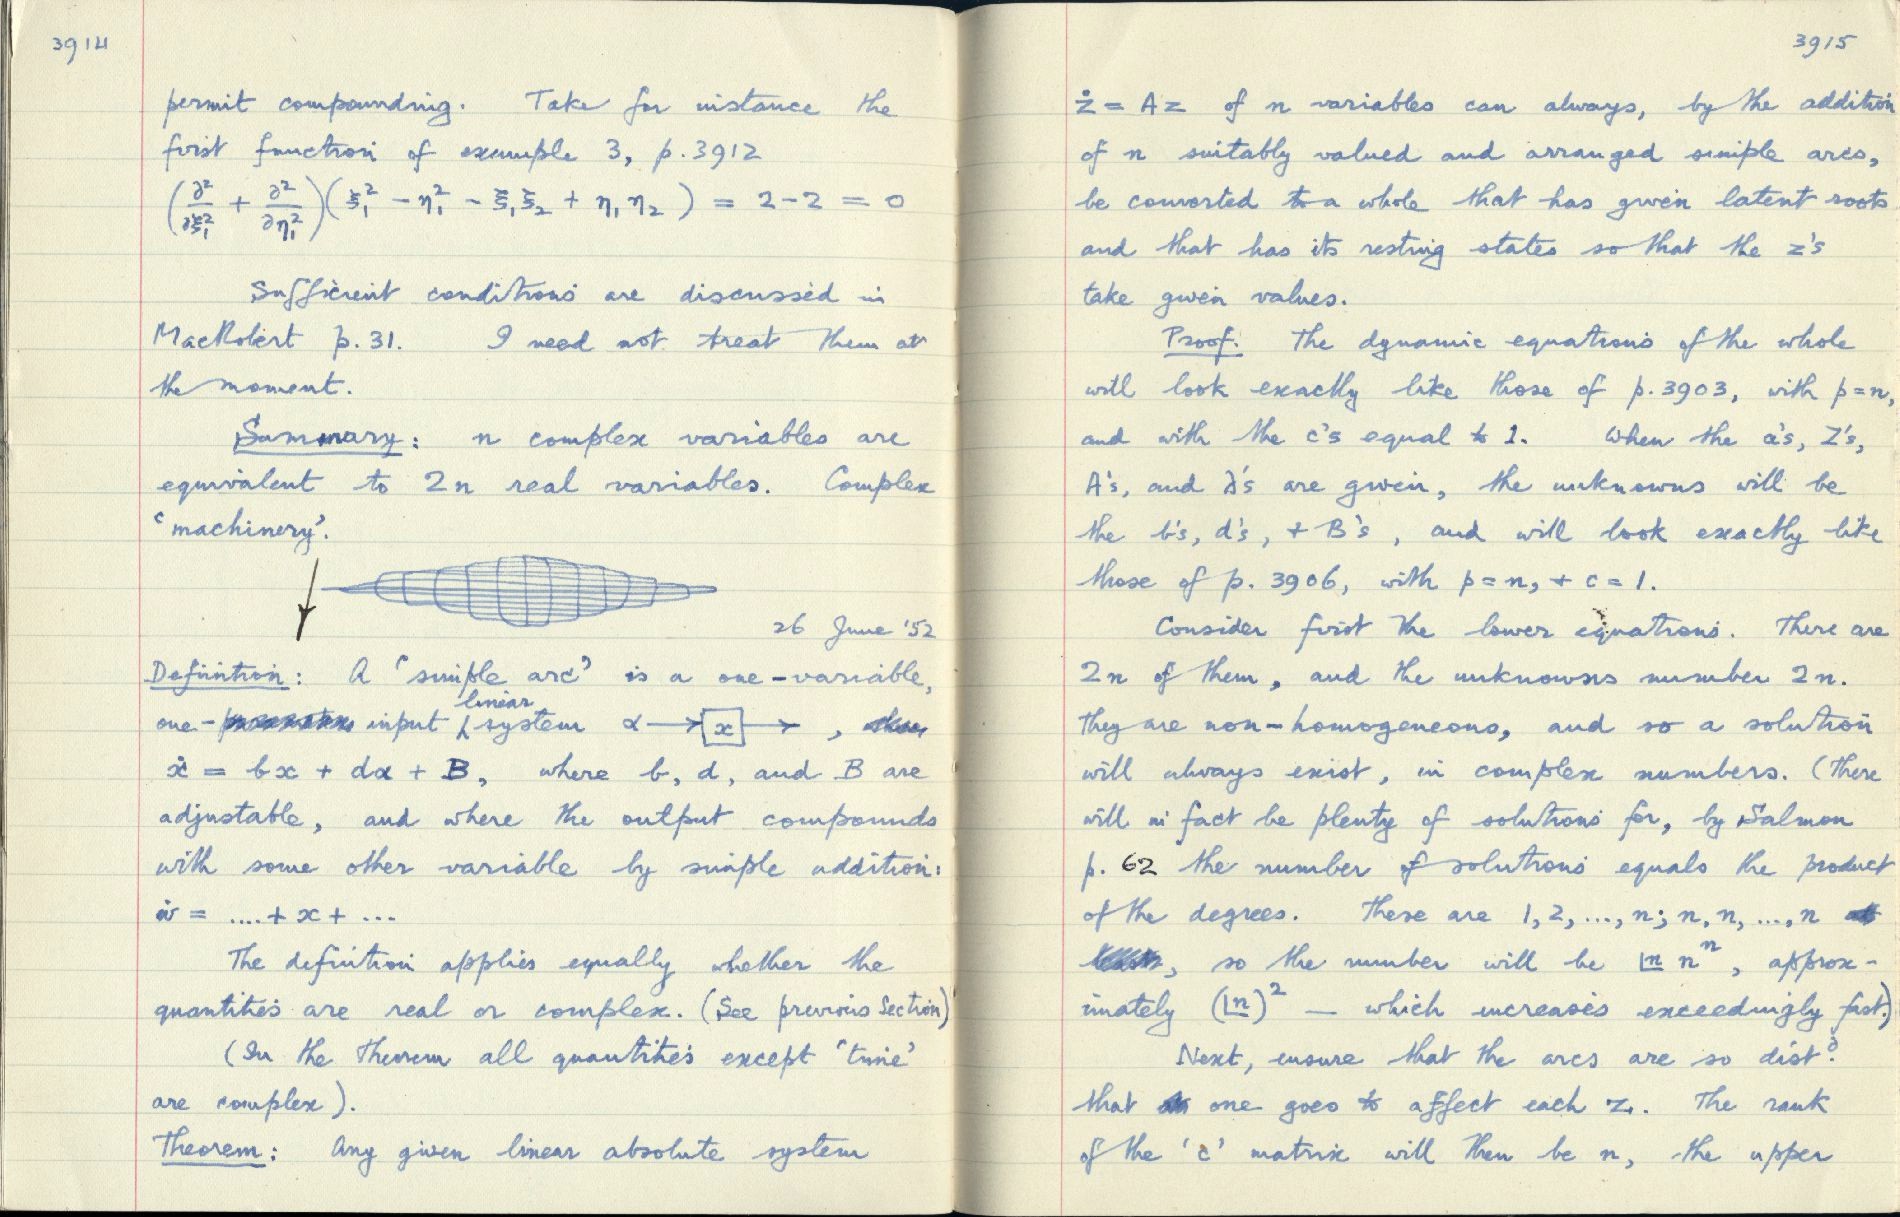 3914
permit compounding. Take for instance the
first function of example 3, p. 3912
(∂²/∂ξ₁² + ∂²/∂η₁²)(ξ₁² − η₁² − ξ₁ξ₂ + η₁η₂) = 2−2 = 0
Sufficient conditions are discussed in
MacRobert p. 31. I need not treat them at
the moment.
Summary: n complex variables are
equivalent to 2n real variables. Complex
'machinery'.
26 June '52
Definition: A 'simple arc' is a one-variable,
one- input linear system α → x → ,
ẋ = bx + dα + B, where b, d, and B are
adjustable, and where the output compounds
with some other variable by simple addition:
v̇ = ....+ x + ...
The definition applies equally whether the
quantities are real or complex. (See previous Section)
(In the Theorem all quantities except 'time'
are complex).
Theorem: Any given linear absolute system
3915
ż = Az of n variables can always, by the addition
of n suitably valued and arranged simple arcs,
be converted to a whole that has given latent roots
and that has its resting states so that the z's
take given values.
Proof: The dynamic equations of the whole
will look exactly like those of p. 3903, with p=n,
and with the c's equal to 1. When the a's, Z's,
A's, and λ's are given, the unknowns will be
the b's, d's, + B's, and will look exactly like
those of p. 3906, with p=n, + c=1.
Consider first the lower equations. There are
2n of them, and the unknowns number 2n.
They are non-homogeneous, and so a solution
will always exist, in complex numbers. (There
will in fact be plenty of solutions for, by Salmon
p. 62 the number of solutions equals the product
of the degrees. These are 1, 2, ..., n; n, n, ..., n
, so the number will be |n nⁿ, approx-
imately (|n)² — which increases exceedingly fast.)
Next, ensure that the arcs are so dist.ᵈ
that one goes to affect each z. The rank
of the 'c' matrix will then be n, the upper